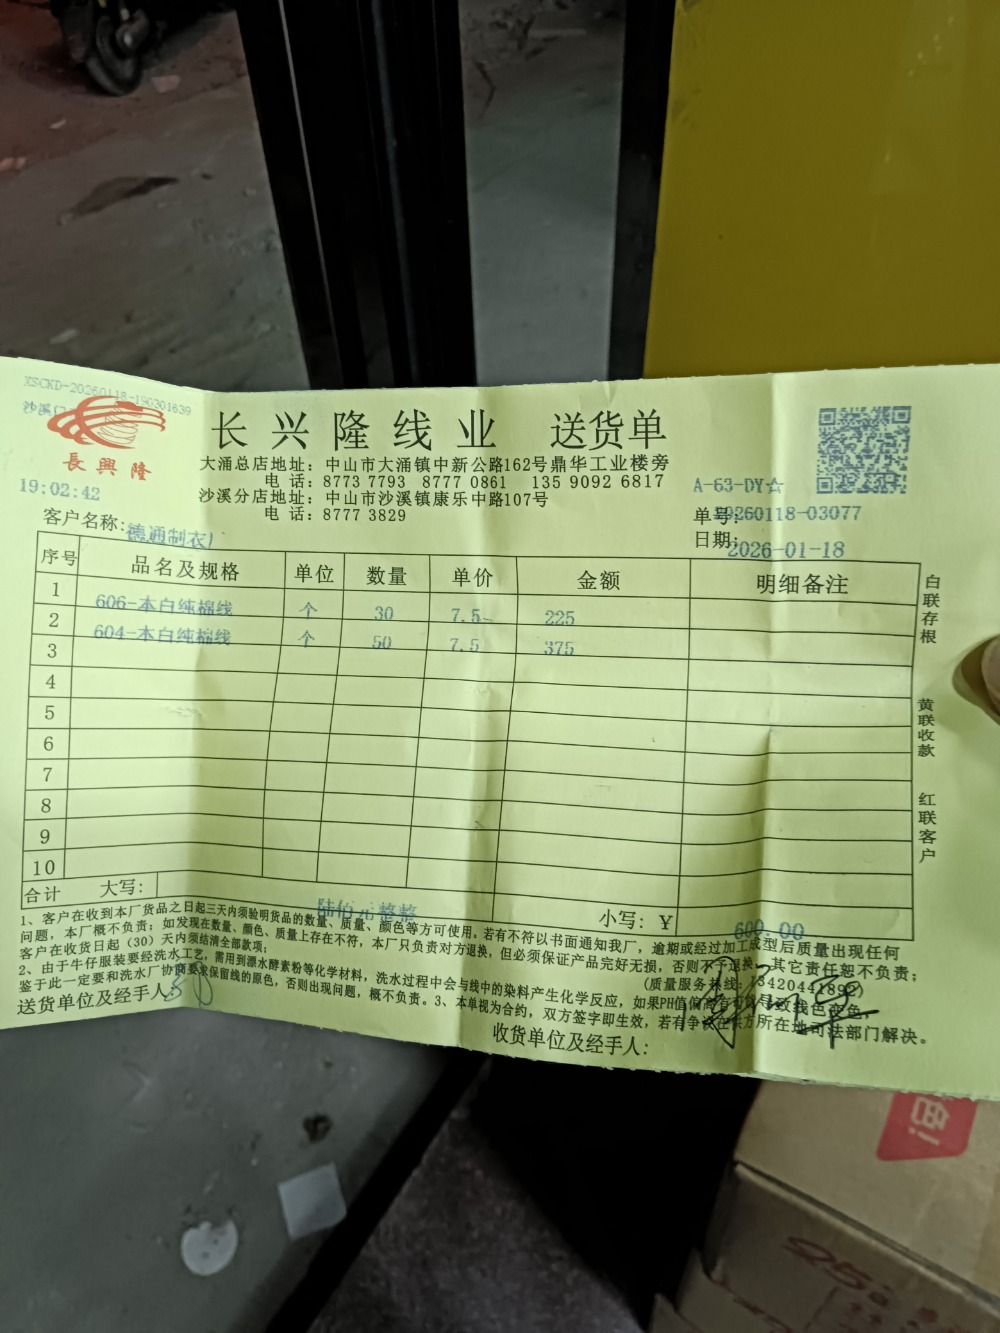 XSCKD-20260118-190301639
沙溪门
長興隆
19:02:42
长兴隆线业 送货单
大涌总店地址：中山市大涌镇中新公路162号鼎华工业楼旁
电 话：8773 7793 8777 0861 135 9092 6817
沙溪分店地址：中山市沙溪镇康乐中路107号
电 话：8777 3829
A-63-DY☆
单号：20260118-03077
日期：2026-01-18
客户名称：德通制衣厂
序号 品名及规格 单位 数量 单价 金额 明细备注
1 606-本白纯棉线 个 30 7.5 225
2 604-本白纯棉线 个 50 7.5 375
3
4
5
6
7
8
9
10
合计 大写： 陆佰元整整 小写：￥ 600.00
白联存根 黄联收款 红联客户
1、客户在收到本厂货品之日起三天内须验明货品的数量、质量、颜色等方可使用。若有不符以书面通知我厂，逾期或经过加工成型后质量出现任何
问题，本厂概不负责；如发现在数量、颜色、质量上存在不符，本厂只负责对方退换，但必须保证产品完好无损，否则不予退换，其它责任恕不负责；
客户在收货日起（30）天内须结清全部款项； (质量服务热线：13420441892)
2、由于牛仔服装要经洗水工艺，需用到漂水酵素粉等化学材料，洗水过程中会与线中的染料产生化学反应，如果PH值偏高有可能导致线色变色，
鉴于此一定要和洗水厂协商要求保留线的原色，否则出现问题，概不负责。3、本单视为合约，双方签字即生效，若有争议在供方所在地司法部门解决。
送货单位及经手人：
收货单位及经手人：